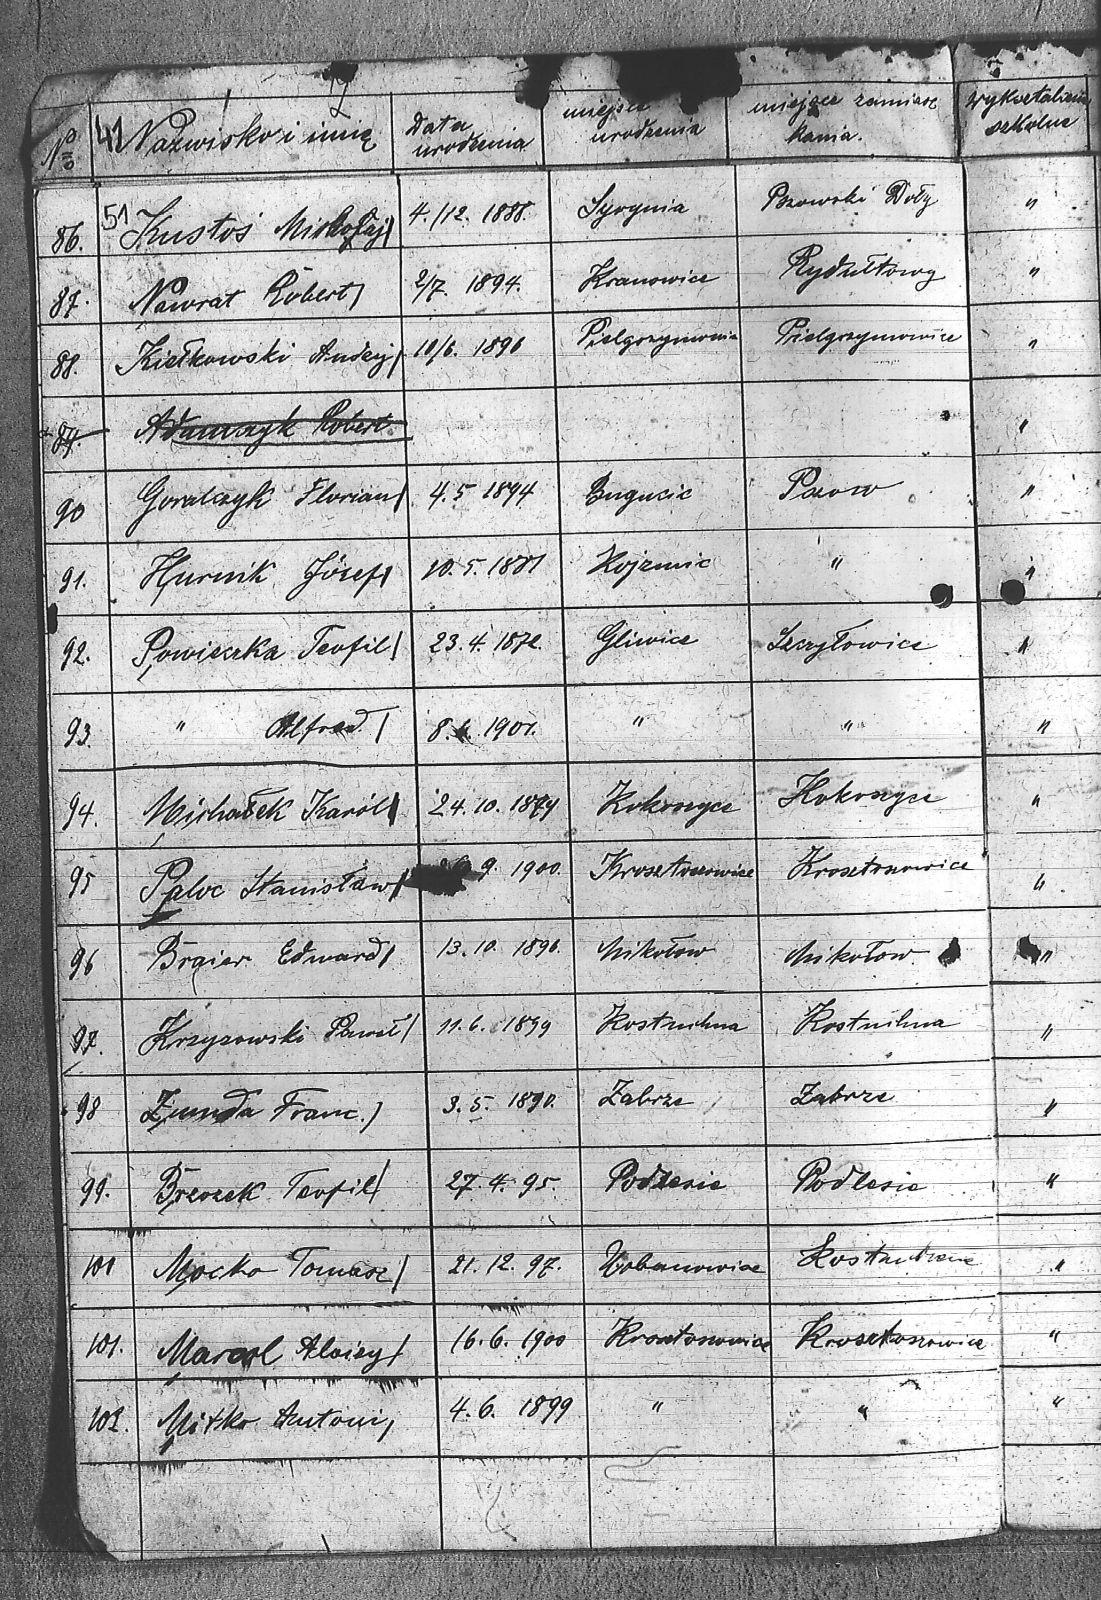 № 41 Nazwisko i imię Data urodzenia miejsce urodzenia miejsce zamieszkania. wykształcenie szkolne
86. 51 Kustoś Mikołaj 4./12. 1888. Syrynia Pszowski Doły "
87. Nawrat Robert 2/7. 1894. Kranowice Rydułtowy "
88. Kiełkowski Andzej 10/6. 1896 Pielgrzymowice "
89. Adamszyk Robert "
90 Goralczyk Florian 4.5 1894 Pszow "
91. Hurnik Józef 10.5.1881 " "
92. Powieszka Teofil 23.4.1872. Gliwice Szczyłowice "
93. " Alfred 8. 1901. " " "
94. Michałek Karól 24.10.1879 Kokoszyce Kokoszyce "
95 Stanisław 9. 1900. Krosztoszowice Krosztoszowice "
96 Braier Edward 13.10. 1896. Mikołow Mikołow "
97. Krzyzowski Paweł 11.6. 1899 Kostuchna Kostuchna "
98 Żmuda Franc. 3.5. 1890. Zabrze Zabrze "
99. Brzozek Teofil 27.4.95. Podlesie Podlesie "
100 Mocko Tomasz 21.12.97. Kostuchna "
101. Marcol Aloizy 16.6.1900 Krosztoszowice Krosztoszowice "
102. Mitko Antoni 4.6. 1899 " " "